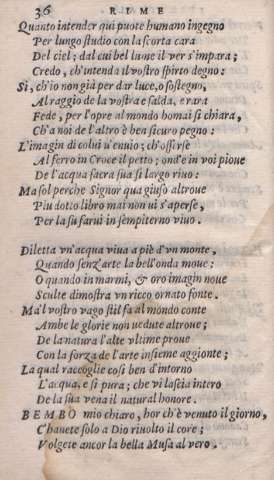 36 RIME
Quanto intender qui puote humano ingegno
Per lungo studio con la scorta cara
Del ciel; dal cui bel lume il ver s'impara;
Credo, ch'intenda il vostro spirto degno:
Si, ch'io non già per dar luce, o sostegno,
Al raggio de la vostra e salda, e rara
Fede, per l'opre al mondo homai si chiara,
Ch'a noi de l'altro è ben sicuro pegno:
L'imagin di colui u'enuio; ch'offerse
Al ferro in Croce il petto; ond'e in voi pioue
De l'acqua sacra sua si largo riuo:
Ma sol perche Signor qua giuso altroue
Piu dotto libro mai non ui s'aperse,
Per la su farui in sempiterno viuo.
Diletta vn'acqua viua a piè d'vn monte,
Quando senz'arte la bell'onda moue:
O quando in marmi, & oro imagin noue
Sculte dimostra vn ricco ornato fonte.
Ma'l vostro vago stil fa al mondo conte
Ambe le glorie non uedute altroue;
De la natura l'alte vltime proue
Con la forza de l'arte insieme aggionte;
La qual raccoglie cosi ben d'intorno
L'acqua, e si pura; che vi lascia intero
De la sua vena il natural honore.
BEMBO mio chiaro, hor ch'è venuto il giorno,
C'hauete solo a Dio riuolto il core;
Volgete ancor la bella Musa al vero.